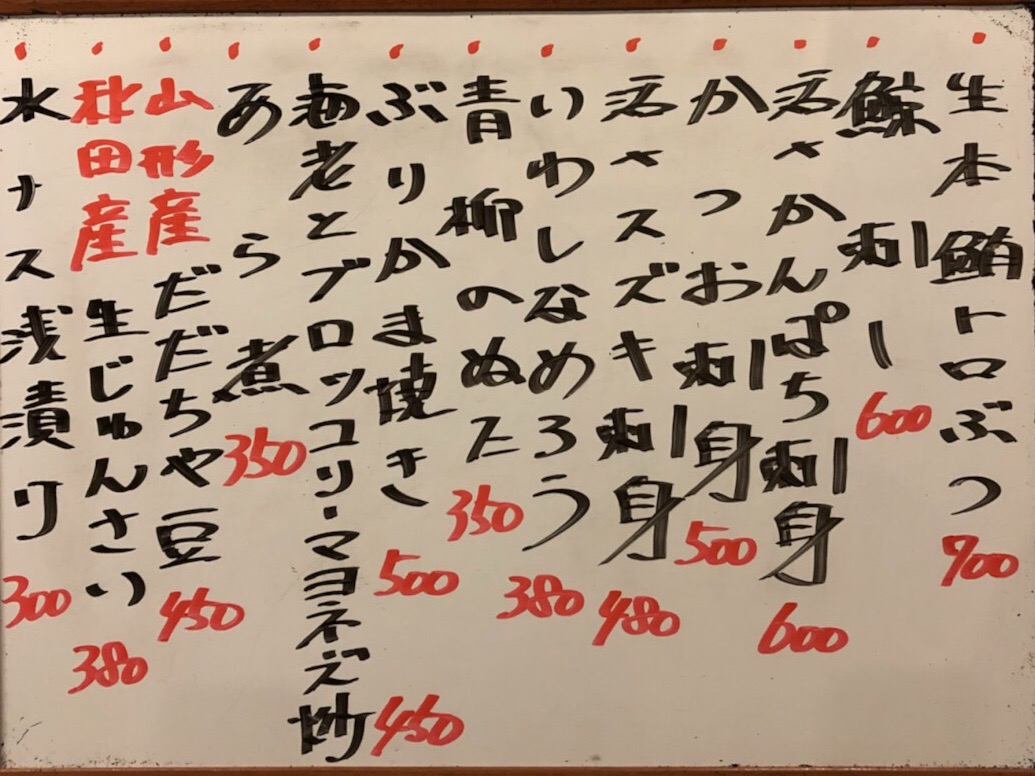 生本鮪トロぶつ 700
鯨刺し 600
活〆かんぱち刺身 600
かつお刺身 500
活〆スズキ刺身 480
いわしなめろう 380
青柳のぬた 350
ぶりかま焼き 500
海老とブロッコリーマヨネズ炒 450
あら煮 350
山形産だだちゃ豆 450
秋田産生じゅんさい 380
水ナス浅漬り 300